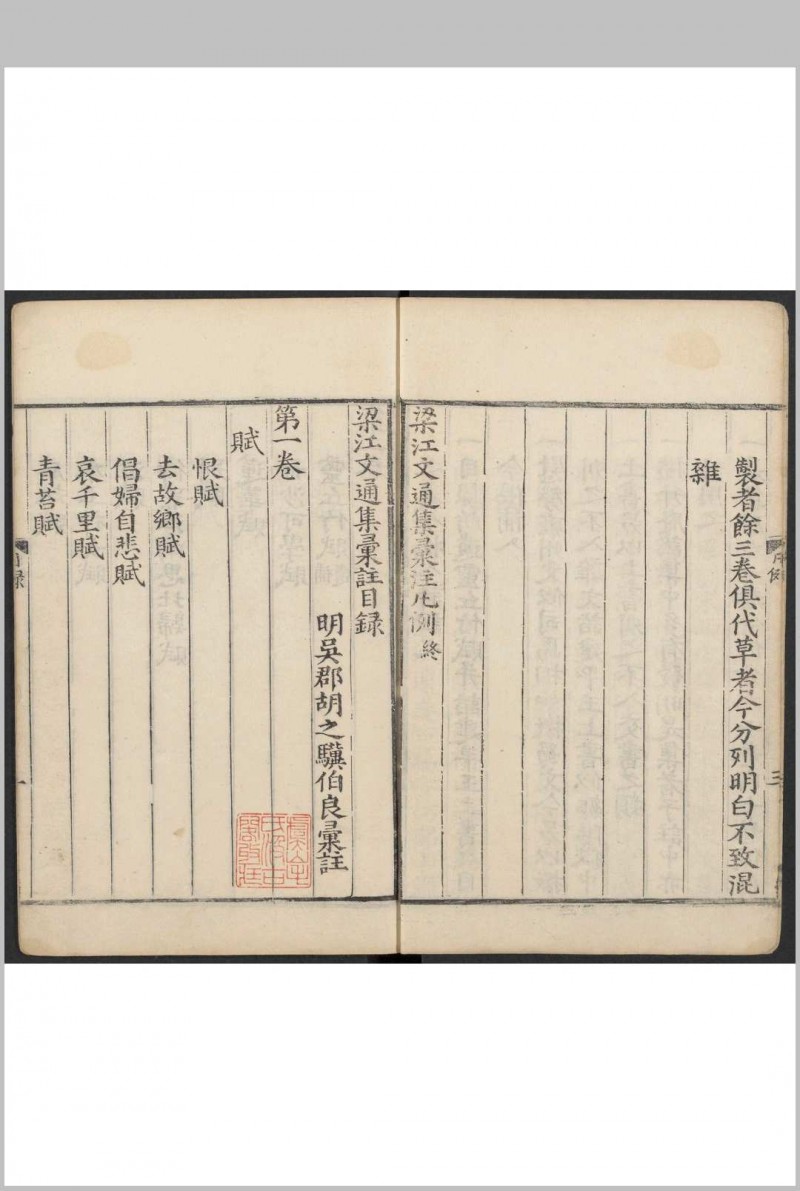 製者餘三卷俱代草者今分列明白不致混
雜
梁江文通集彙註凡例終
梁江文通集彙註目録
明吳郡胡之驥伯良彙註
第一卷
賦
恨賦
去故鄉賦
倡婦自悲賦
哀千里賦
青苔賦
三
一